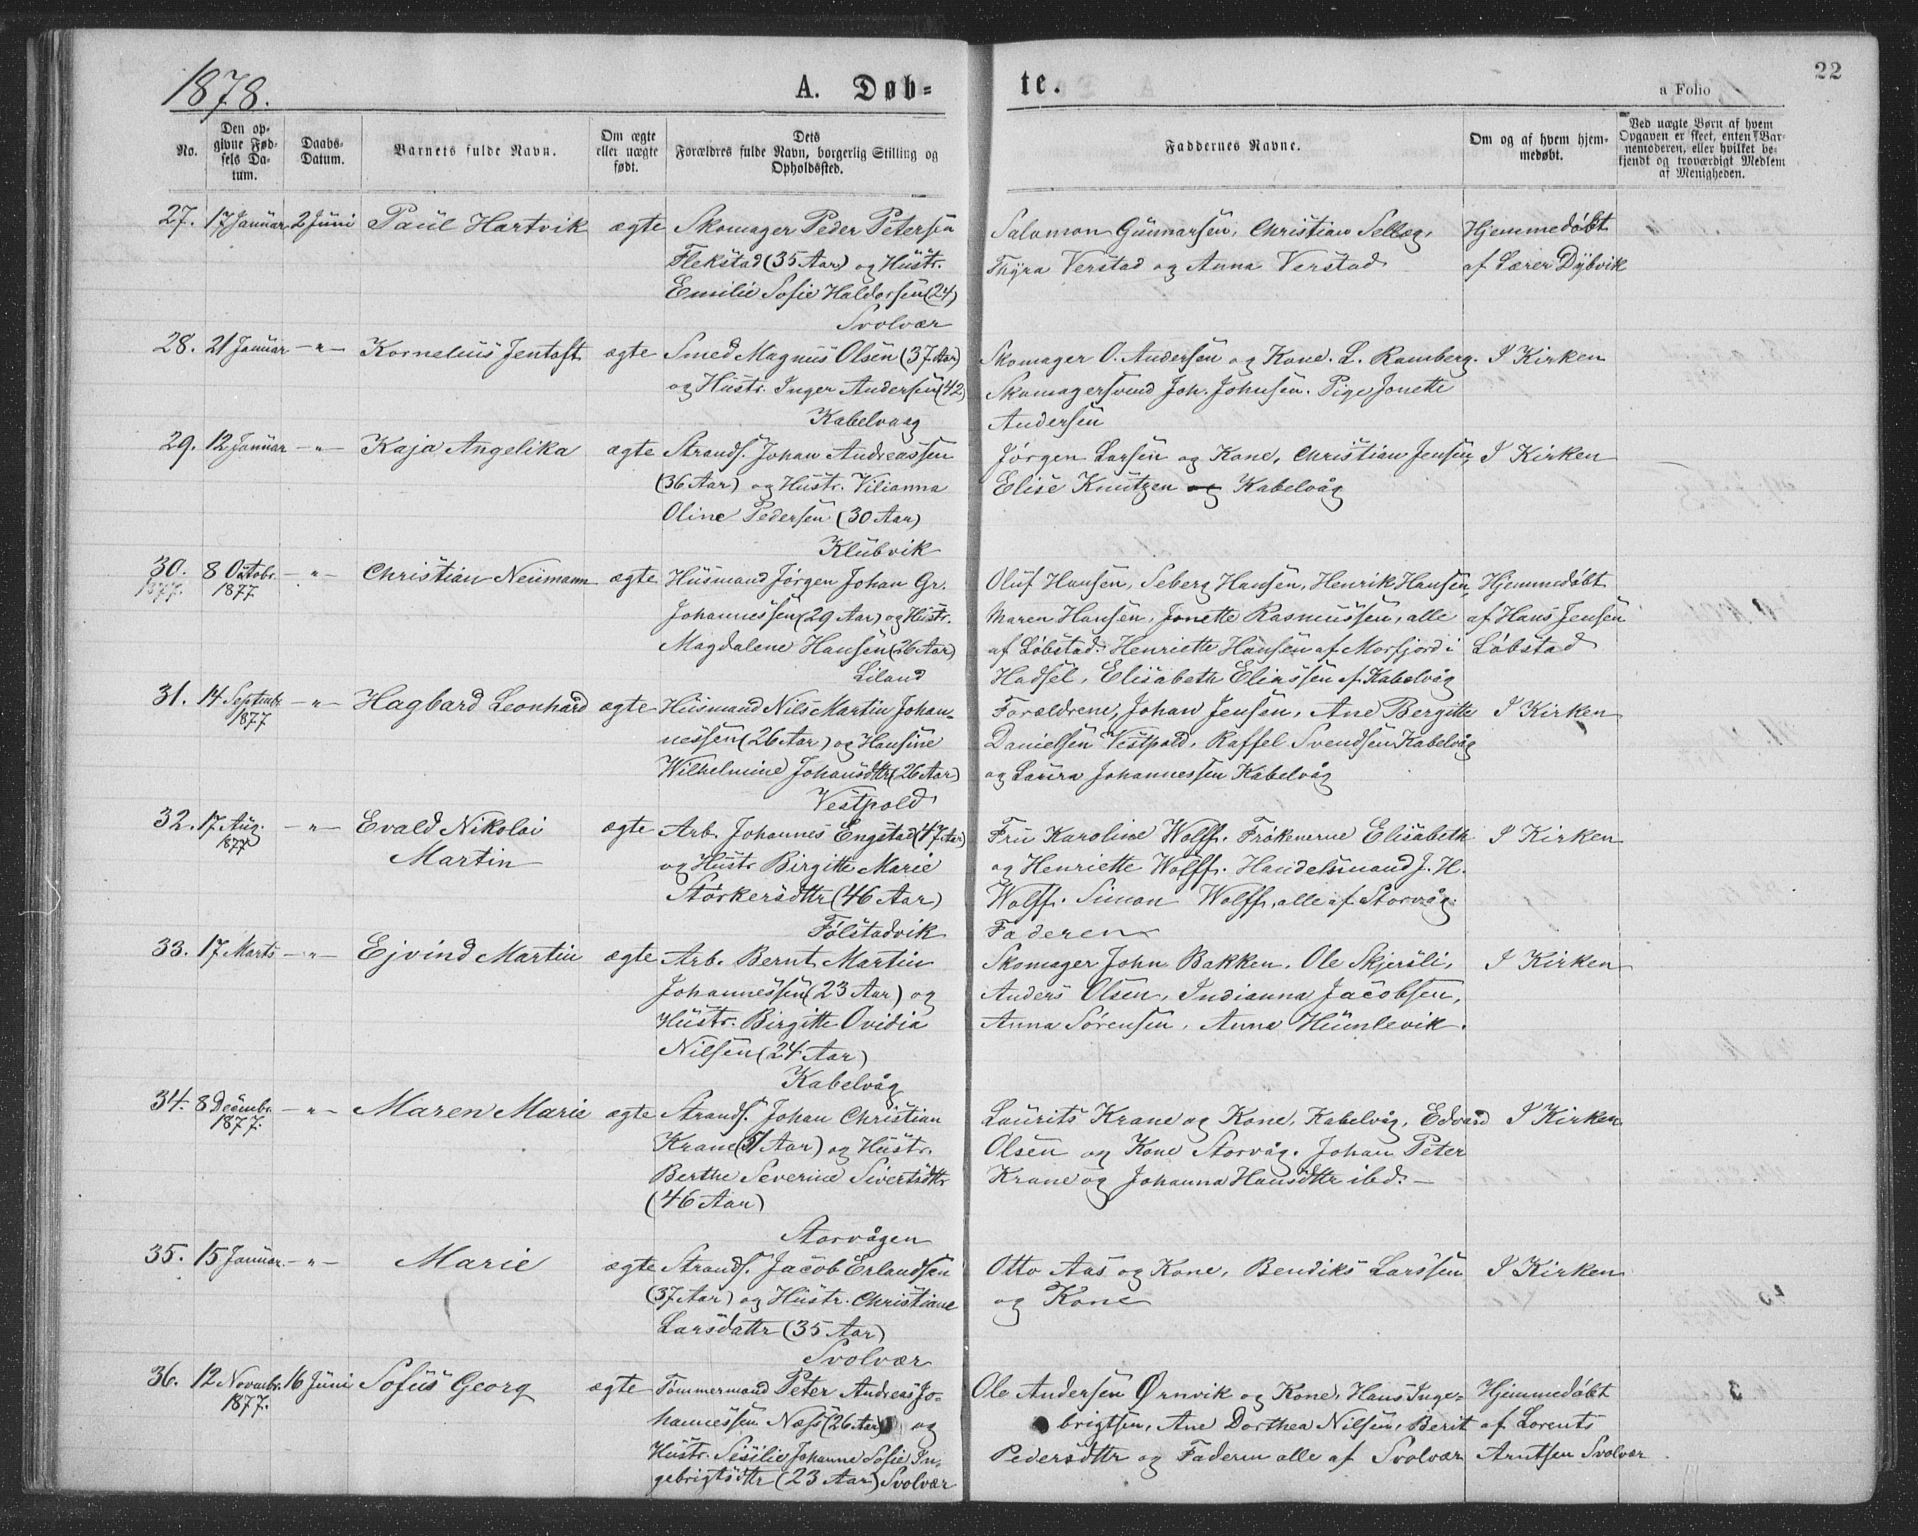 1878.
A. Døb-
te.
a Folio
22
No.
Den op-
givne Fød-
sels Da-
tum.
Daabs-
Datum.
Barnets fulde Navn.
Om ægte
eller uægte
født.
Dets
Forældres fulde Navn, borgerlig Stilling og
Opholdssted.
Faddernes Navne.
Om og af hvem hjem-
medøbt.
Ved uægte Børn af hvem
Opgaven er skeet, enten Bar-
nemoderen, eller hvilket be-
kjendt og troværdigt Medlem
af Menigheden.
27. 17 Januar 2 Juni Paul Hartvik ægte Skomager Peder Petersen
Flekstad (35 Aar) og Hustr.
Emilie Sofie Haldorsen (24)
Svolvær
Salamon Gunnarsen, Christian Selleg,
Thyra Verstad og Anna Verstad
Hjemmedøbt
af Lærer Dybvik
28. 21 Januar —"— Kornelius Jentoft ægte Smed Magnus Olsen (37 Aar)
og Hustr. Inger Andersen (42)
Kabelvaag
Skomager O. Andersen og Kone. L. Ramberg.
Skomagersvend Joh. Johnsen. Pige Jonette
Andersen
I Kirken
29. 12 Januar —"— Kaja Angelika ægte Strands. Johan Andreassen
(36 Aar) og Hustr. Vilianna
Oline Pedersen (30 Aar)
Klubvik
Jørgen Larsen og Kone, Christian Jensen,
Elise Knutzen og Kabelvåg
I Kirken
30. 8 Octobr. —"— Christian Neumann ægte Husmand Jørgen Johan Gr.
1877. 1877
Johannessen (29 Aar) og Hustr.
Magdalene Hansen (26 Aar)
Liland
Oluf Hansen, Seberg Hansen, Henrik Hansen,
Maren Hansen, Jonette Rasmussen, alle
af Løbstad. Henriette Hansen af Morfjord i
Hadsel, Elisabeth Eliassen af Kabelvåg
Hjemmedøbt
af Hans Jensen
Løbstad
31. 14 Septembr. —"— Hagbard Leonhard ægte Husmand Nils Martin Johan-
1877
nessen (26 Aar) og Hansine
Wilhelmine Johansdttr (26 Aar)
Vestpold
Forældrene, Johan Jensen, Ane Bergitte
Danielsen Vestpold, Raffel Svendsen Kabelvåg
og Laura Johannessen Kabelvåg
I Kirken
32. 17 Aug. —"— Evald Nikolai ægte Arb. Johannes Engstad (47 Aar)
1877
Martin
og Hustr Birgitte Marie
Størkersdttr (46 Aar)
Følstadvik
Fru Karoline Wolff. Frøknerne Elisabeth
og Henriette Wolff. Handelsmand J. H.
Wolff. Simon Wolff, alle af Storvåg.
Faderen
I Kirken
33. 17 Marts —"— Ejvind Martin ægte Arb. Bernt Martin
Johannessen (23 Aar) og
Hustr. Birgitte Ovidia
Nilsen (24 Aar)
Kabelvåg
Skomager John Bakken. Ole Skjersli,
Anders Olsen, Indianna Jacobsen,
Anna Sørensen, Anna Humlevik.
I Kirken
34. 8 Decembr. —"— Maren Marie ægte Strands. Johan Christian
1877.
Krane (51 Aar) og Hustr.
Berthe Severine Sivertsdttr
(46 Aar)
Storvågen
Laurits Krane og Kone, Kabelvåg, Edvard
Olsen og Kone Storvåg. Johan Peter
Krane og Johanna Hansdttr ibd.—
I Kirken
35. 15 Januar —"— Marie ægte Strands. Jacob Erlandsen
(37 Aar) og Hustr. Christiane
Larsdattr (35 Aar)
Svolvær
Otto Aas og Kone, Bendiks Larssen
og Kone
I Kirken
36. 12 Novembr. 16 Juni Sofus Georg ægte Tømmermand Peter Andreas Jo-
1877.
hannessen Næss (26 Aar) og
Hustr. Sesilie Johanne Sofie In-
gebrigtsdttr (23 Aar) Svolvær
Ole Andersen Ørnvik og Kone, Hans Inge-
brigtsen, Ane Dorthea Nilsen, Berit
Pedersdttr og Faderen alle af Svolvær
Hjemmedøbt
af Lorents
Arntsen Svolvær